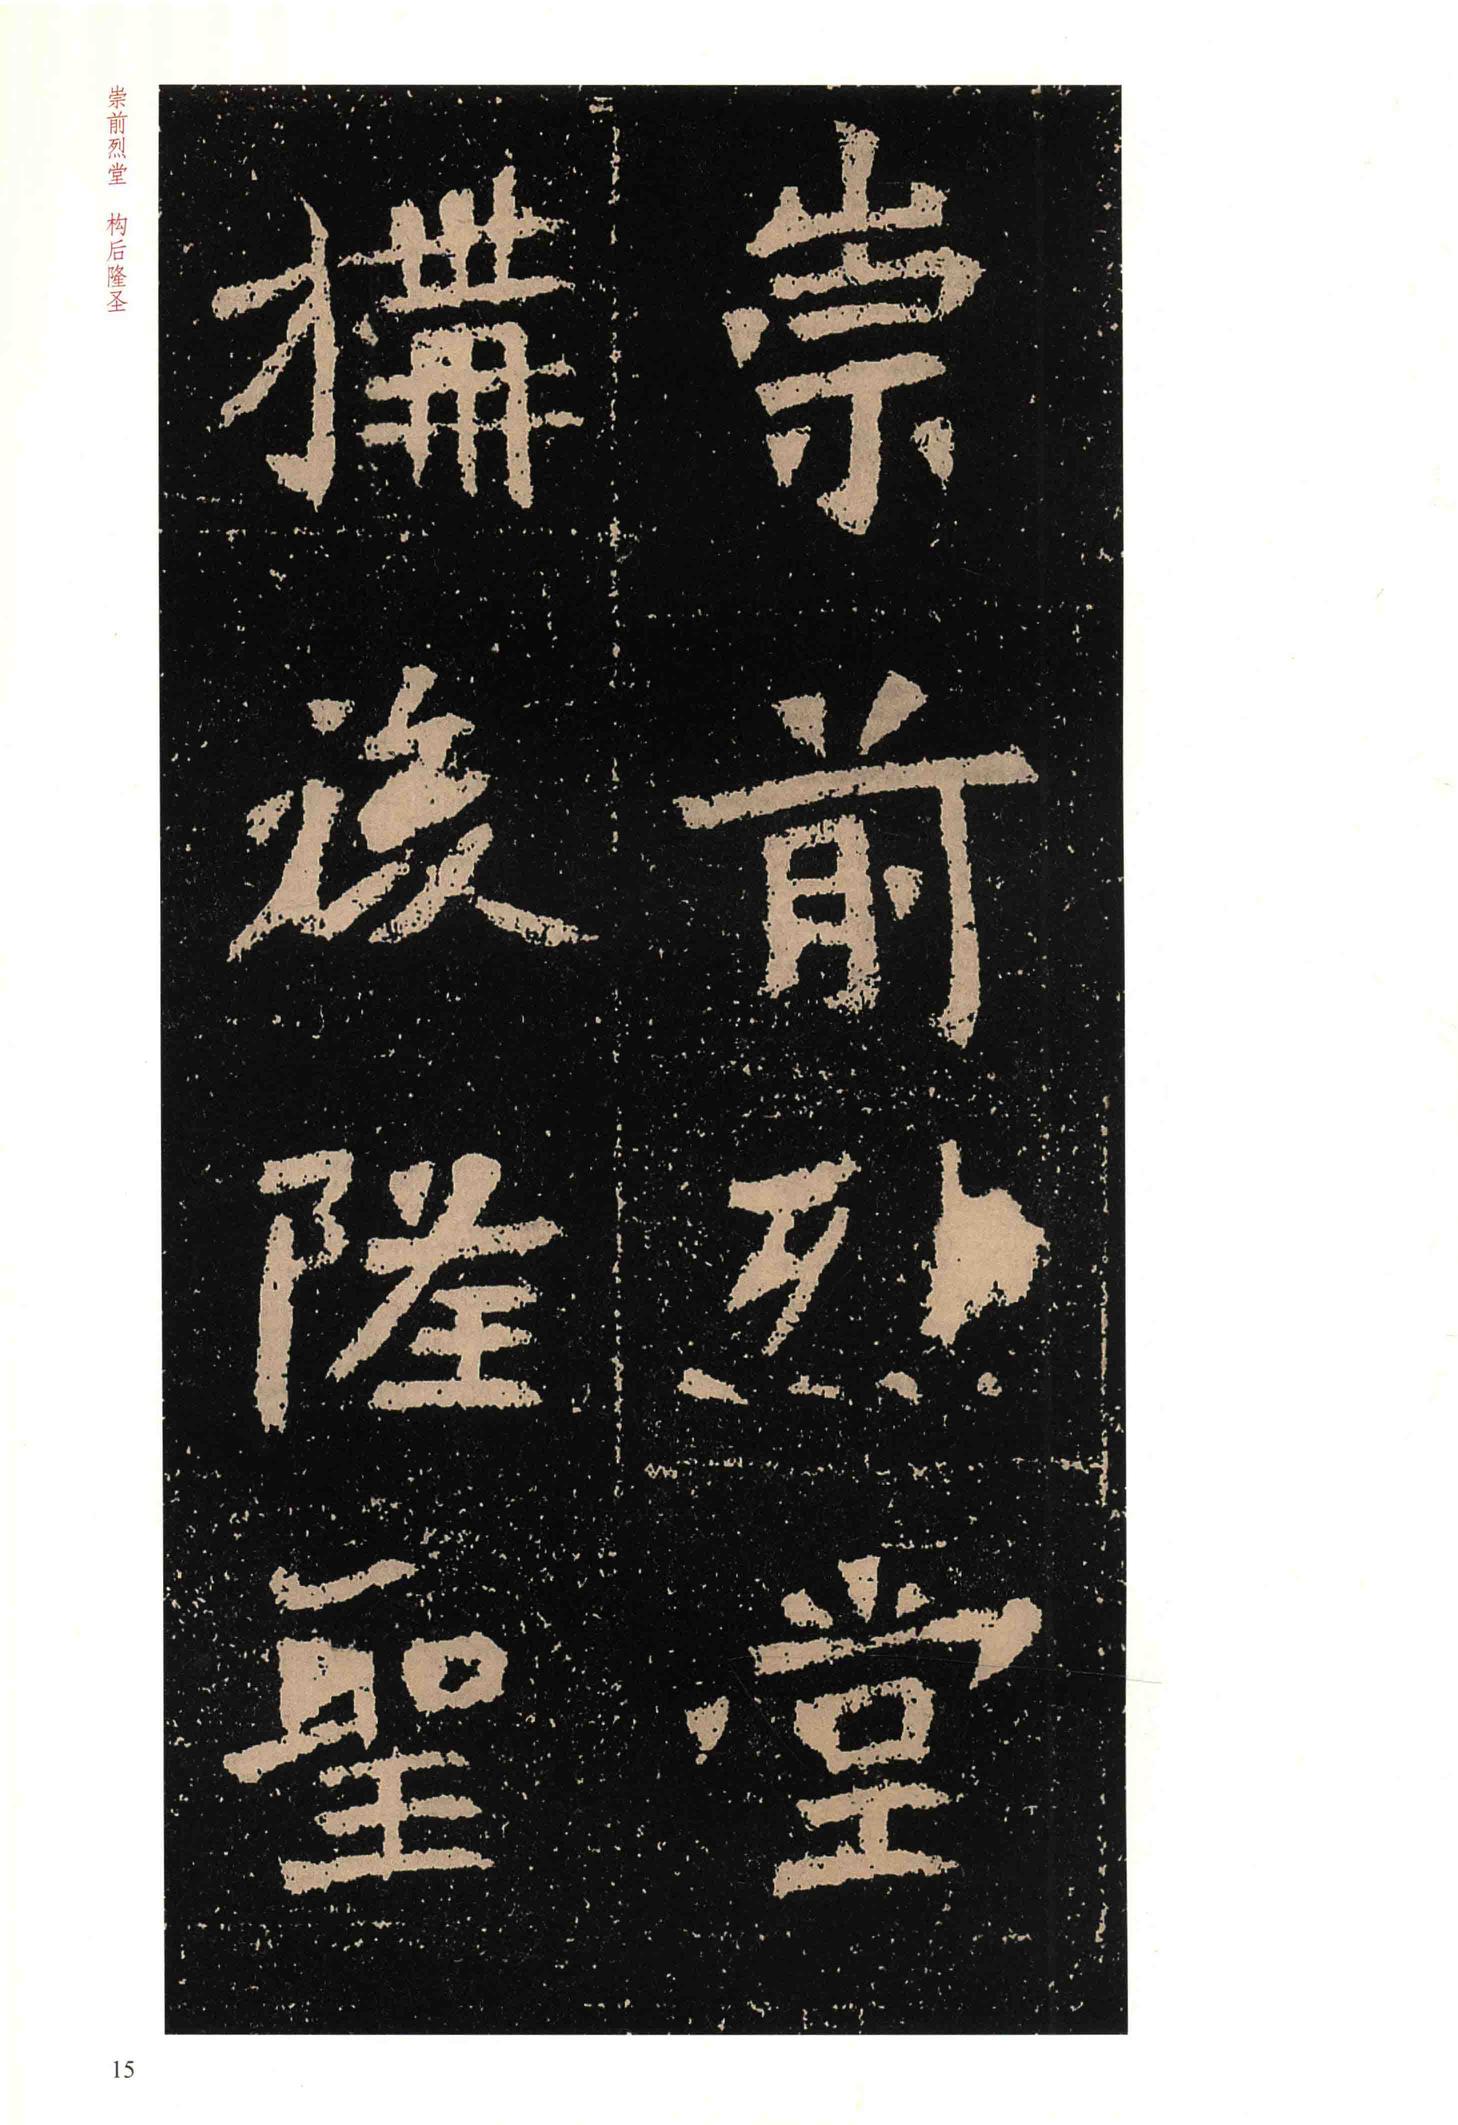 崇前烈堂
構後隆聖
崇前烈堂　构后隆圣
15